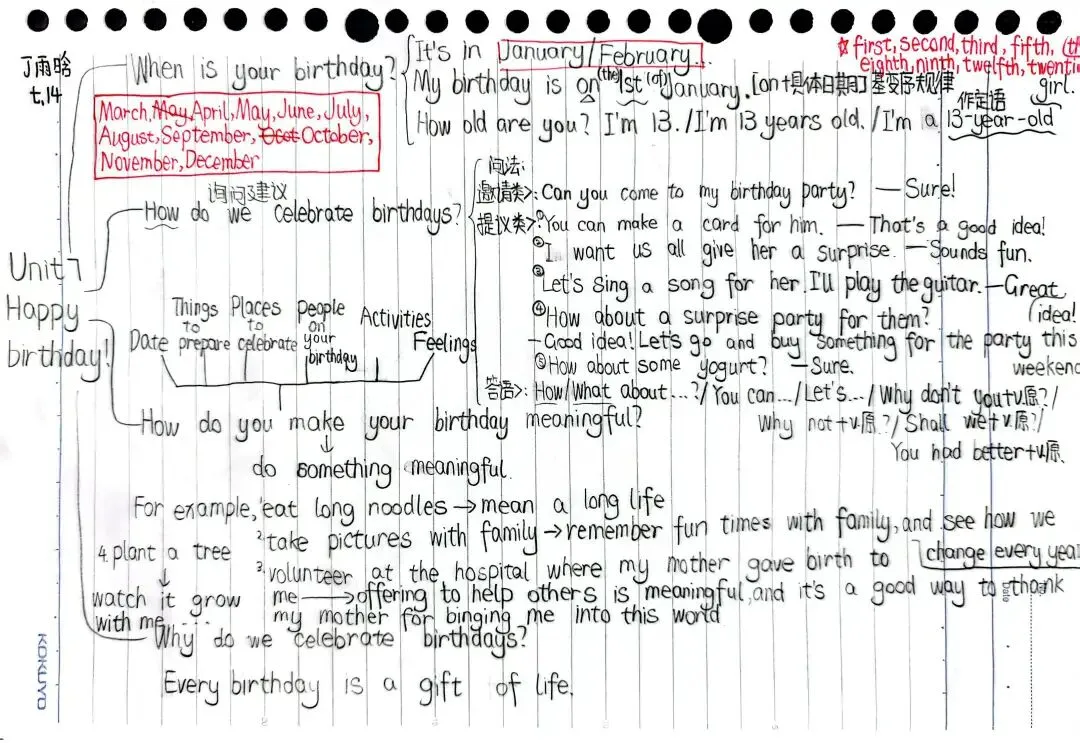 丁雨晗
七,14
Unit 7
Happy
birthday!
When is your birthday?
It's in January/February...
My birthday is on (the) 1st (of) January. [on+具体日期] 基变序规律
☆first, second, third, fifth,
eighth, ninth, twelfth,
How old are you? I'm 13./I'm 13 years old./I'm a 13-year-old girl.
作定语
March, May April, May, June, July,
August, September, Ocot October,
November, December
询问建议
How do we celebrate birthdays?
问法:
邀请类>: Can you come to my birthday party? —Sure!
提议类>: ①You can make a card for him. —That's a good idea!
②I want us all give her a surprise. —Sounds fun.
③Let's sing a song for her. I'll play the guitar. —Great idea!
④How about a surprise party for them?
—Good idea! Let's go and buy something for the party this weekend
⑤How about some yogurt? —Sure.
答语>: How/What about...?/You can.../Let's.../Why don't you+v.原?/
Why not+v.原?/Shall we+v.原?/
You had better+v.原.
Date
Things to prepare
Places to celebrate
people on your birthday
Activities
Feelings
How do you make your birthday meaningful?
↓
do something meaningful.
For example, 1.eat long noodles→mean a long life
2.take pictures with family→remember fun times with family, and see how we change every year
3.volunteer at the hospital where my mother gave birth to
me→offering to help others is meaningful, and it's a good way to thank
my mother for binging me into this world
4.plant a tree
↓
watch it grow
with me....
Why do we celebrate birthdays?
Every birthday is a gift of life.
KOKUYO